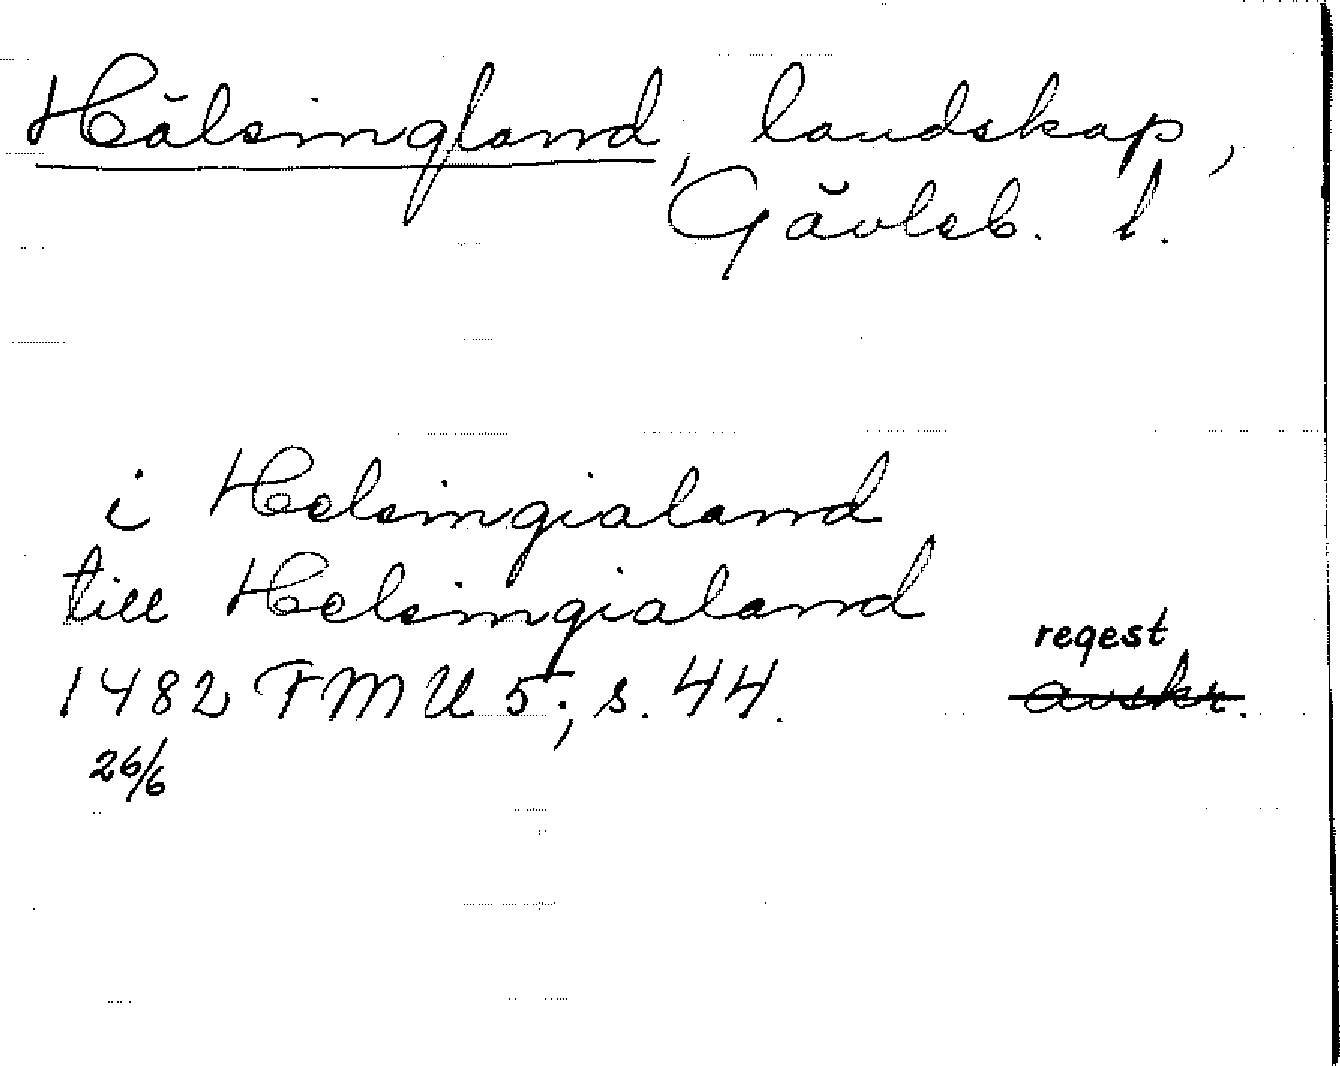 Hälsingland, landskap,
Gävleb. l.
i Helsingialand
till Helsingialand
regest
1482 FMU 5:, s. 44. avskr.
26/6